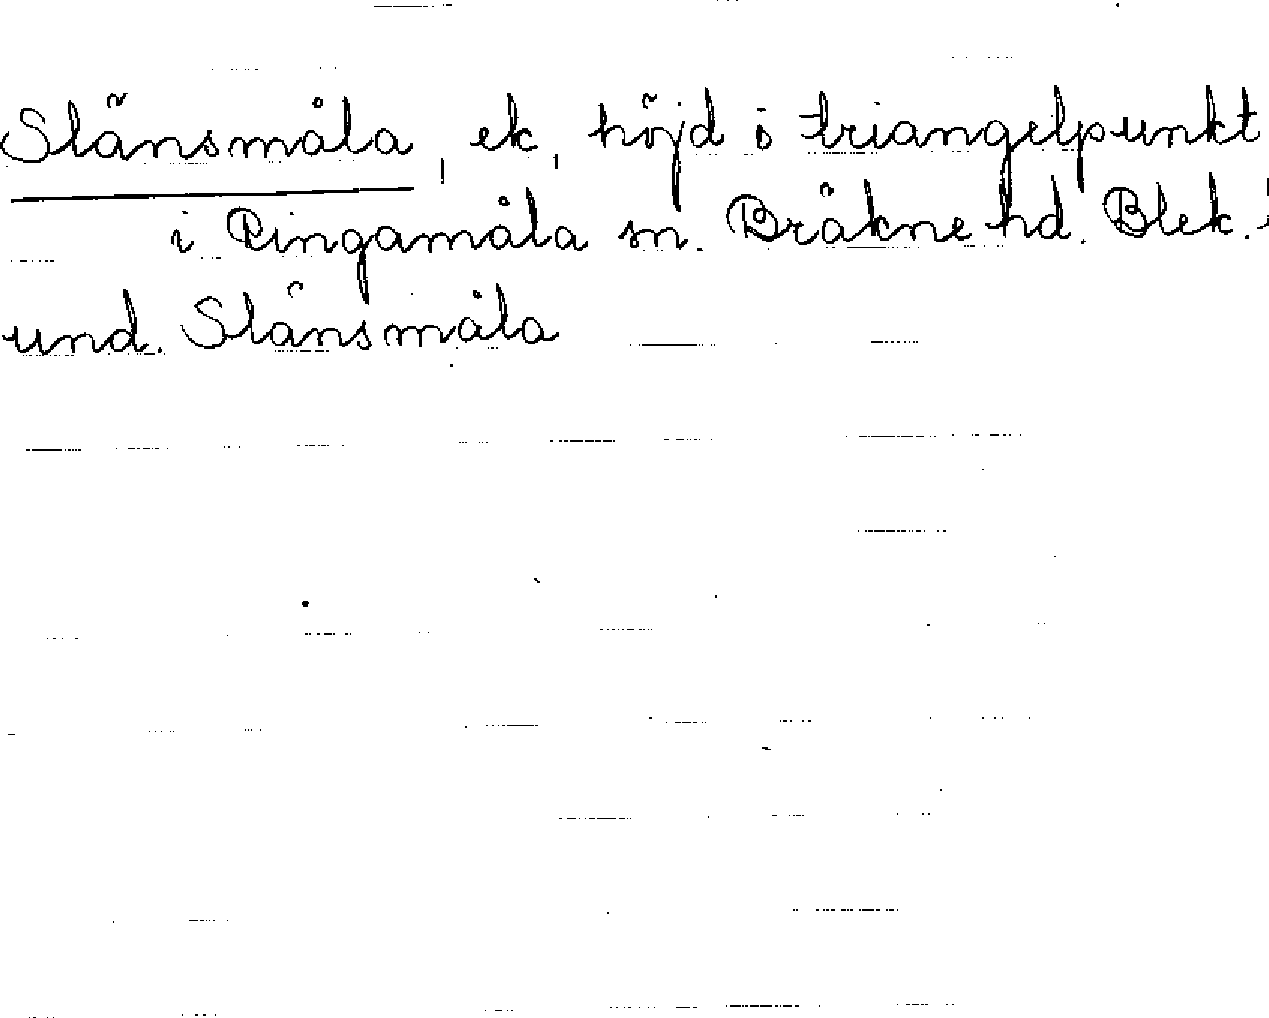 Slänsmåla, ek, höjd i triangelpunkt
i Ringamåla sn. Bräkne hd. Blek.
und. Slänsmåla